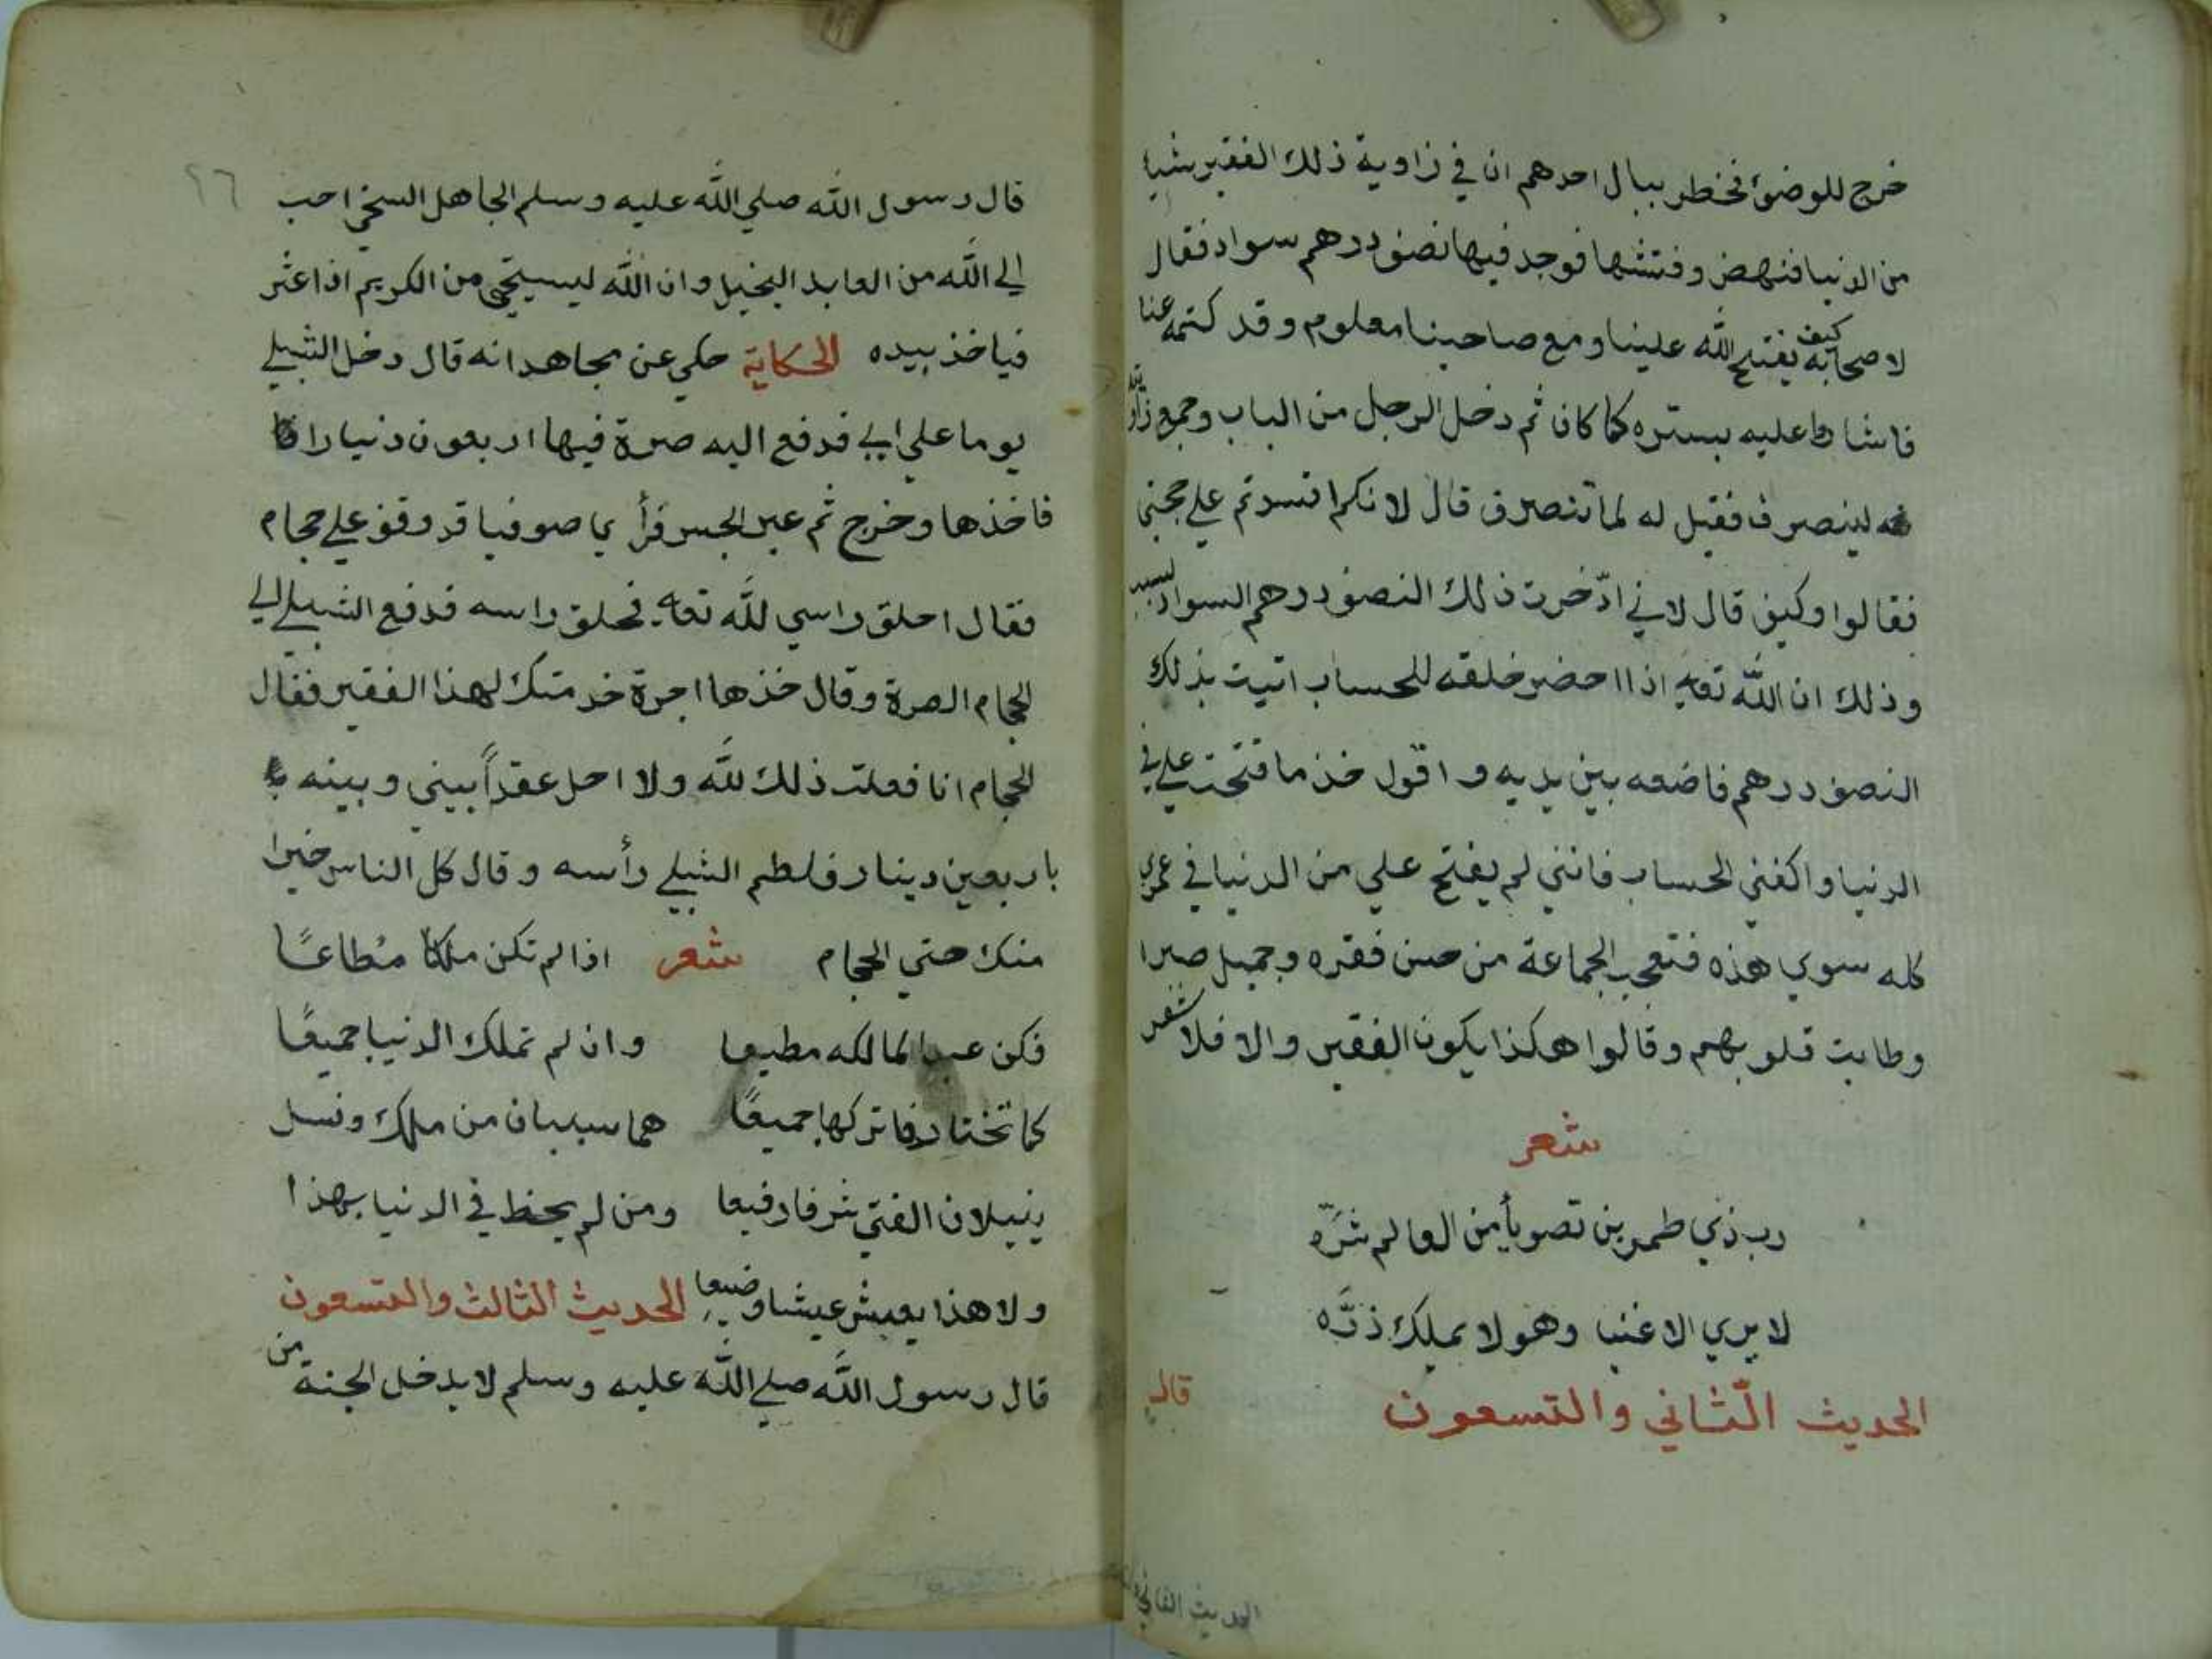 خرج للوضوء فخطر ببال احدهم ان في زاوية ذلك الفقير شيا
من الدنيا فنهض وفتشها فوجد فيها نصف درهم سواد فقال
لاصحابه كيف يفتح الله علينا ومع صاحبنا معلوم وقد كتمه عنا
فاشا عليه بستره كما كان ثم دخل الرجل من الباب وجمع زاويته
لينصرف فقيل له لما تنصرف قال لانكم افسدتم علي حجتي
فقالوا وكيف قال لاني ادّخرت ذلك النصف درهم السواد لسبب
وذلك ان الله تعالي اذا احضر خلقه للحساب اتيت بذلك
النصف درهم فاضعه بين يديه و اقول خذ ما فتحت علي في
الدنيا واكفني الحساب فانني لم يفتح علي من الدنيا في عمري
كله سوي هذه فتعجب الجماعة من حسن فقره وجميل صبرا
وطابت قلوبهم وقالوا هكذا يكون الفقير والا فلا شعر
شعر
رب ذي طمرين تصو يأمن العالم شرّه
لا يري الا غنيا وهو لا يملك ذرّه
الحديث الثّاني والتسعون
قال
الحديث الثاني
٩٦
قال رسول الله صلي الله عليه وسلم الجاهل السخي احب
الي الله من العابد البخيل وان الله ليستحي من الكريم اذا عثر
فياخذ بيده الحكاية حكي عن مجاهد انه قال دخل الشبلي
يوما علي ابي فدفع اليه صرة فيها اربعون دنيارا
فاخذها وخرج ثم عبر الجسر فرأ يا صوفيا قد وقف علي حجام
فقال احلق راسي لله تعالي فحلق راسه فدفع الشبلي الي
الحجام الصرة وقال خذها اجرة خدمتك لهذا الفقير فقال
الحجام انا فعلت ذلك لله ولا احل عقداً بيني وبينه
باربعين دينار فلطم الشبلي رأسه وقال كل الناس خيرا
منك حتي الحجام شعر اذا لم تكن ملكا مُطاعًا
فكن عبدا لمالكه مطيعا وان لم تملك الدنيا جميعًا
كما تختار فاتركها جميعًا هما سببان من ملك ونسل
ينيلان الفتي شرفا رفيعا ومن لم يحظ في الدنيا بهذا
ولا هذا يعيش عيشا وضيعا الحديث الثالث والتسعون
قال رسول الله صلي الله عليه وسلم لا يدخل الجنة من